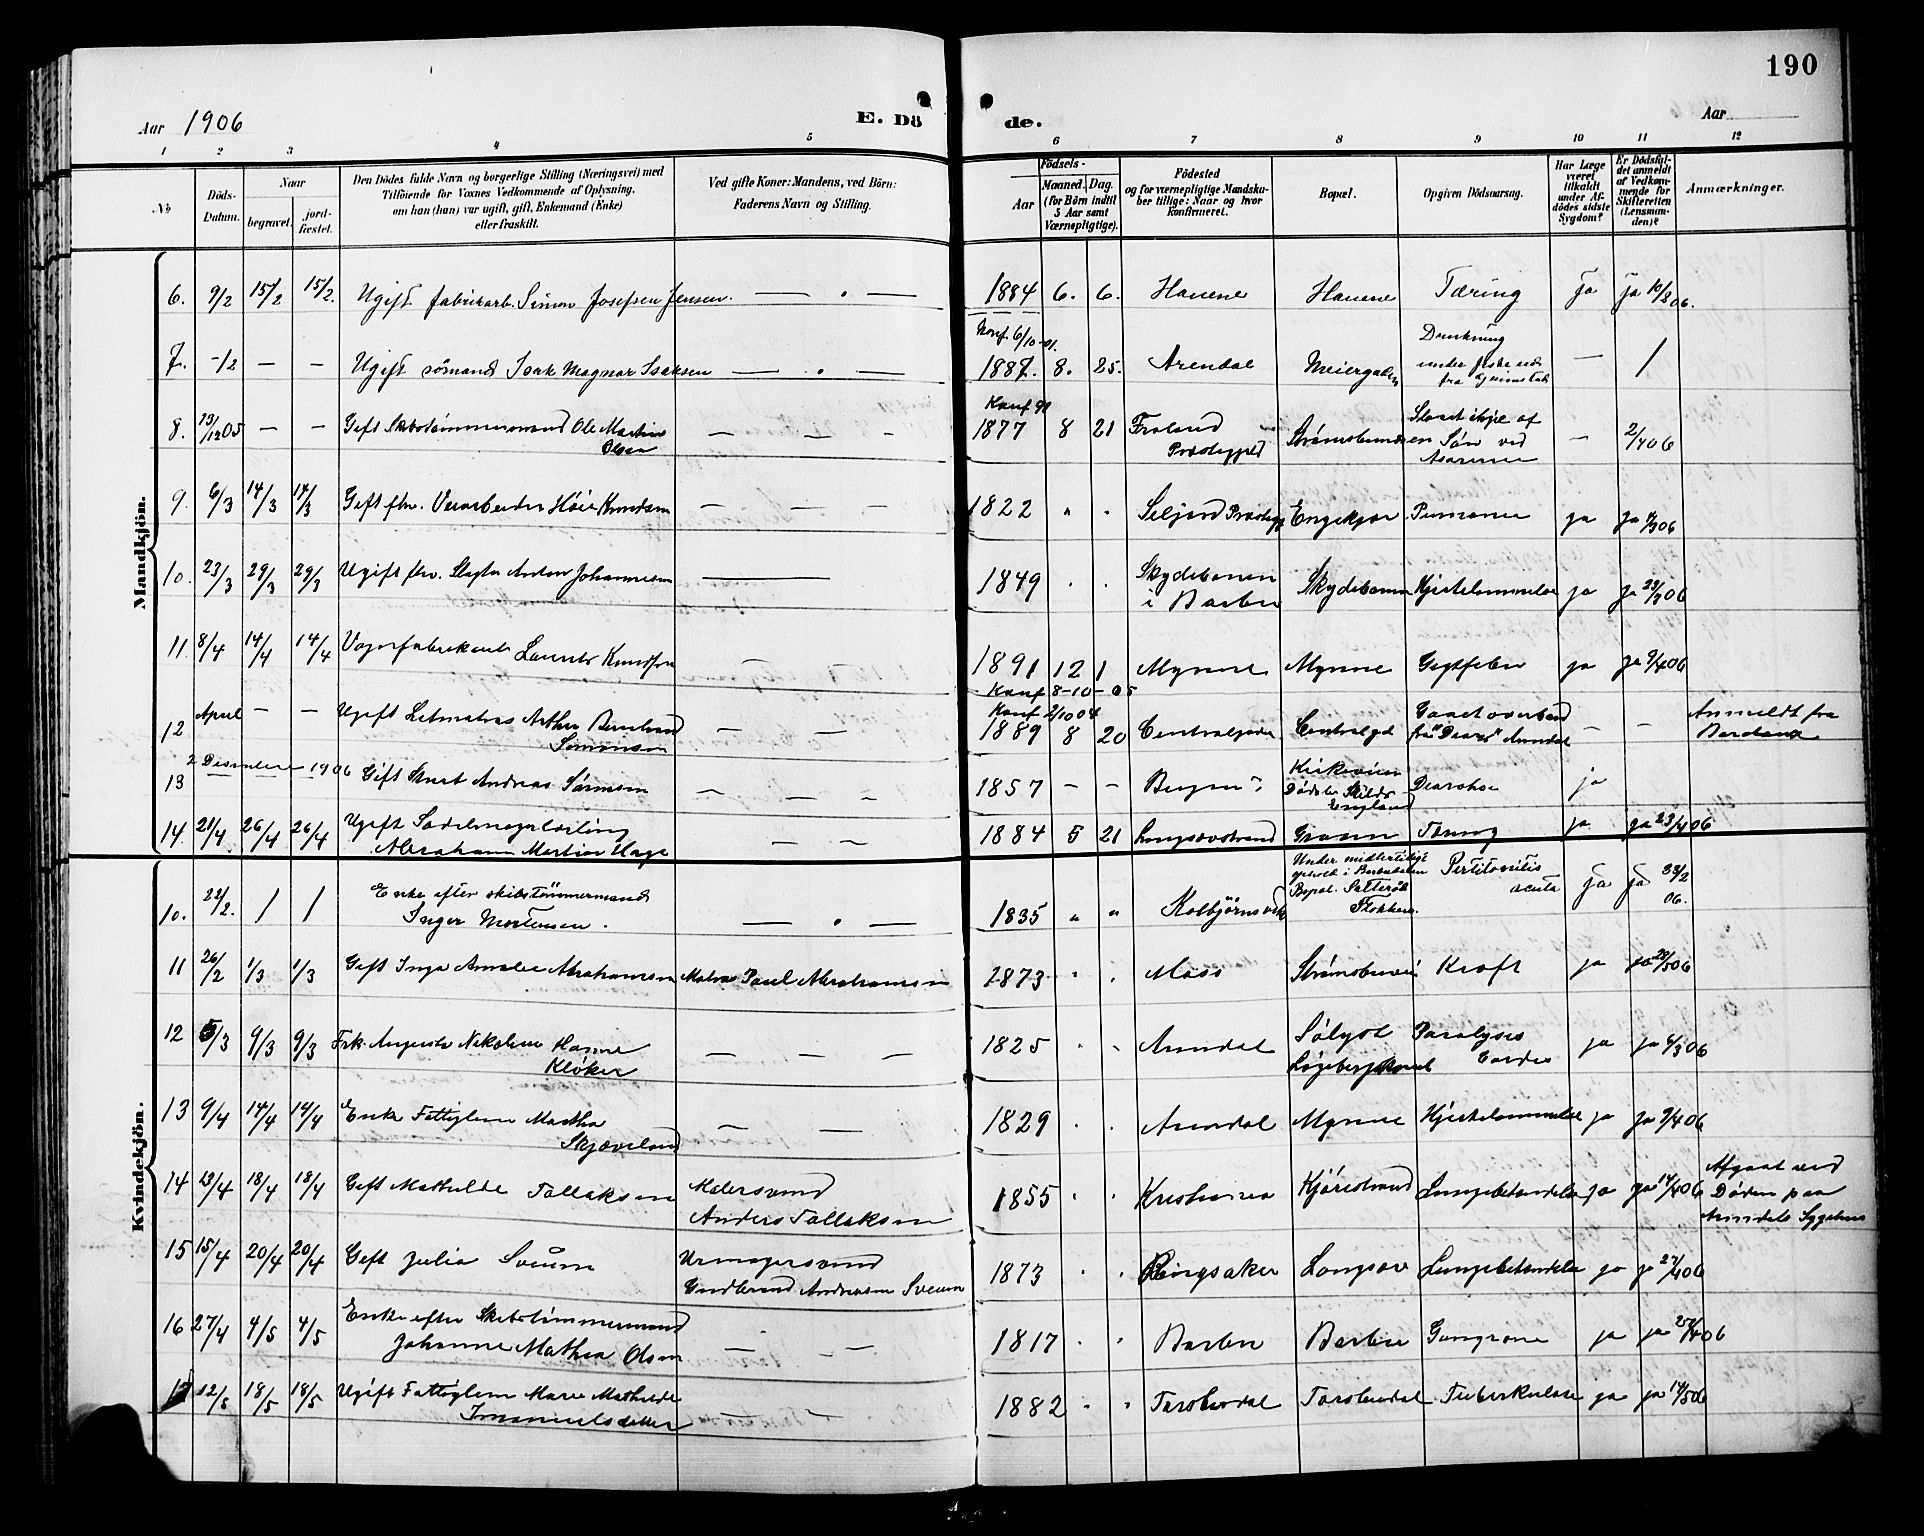 190
Aar 1906
E. Dö
de.
Aar
1 2 3 4 5 6 7 8 9 10 11 12
№
Döds-
Datum.
Naar
begravet.
jord-
fæstet.
Den Dödes fulde Navn og borgerlige Stilling (Næringsvei) med
Tilföiende for Voxnes Vedkommende af Oplysning,
om han (hun) var ugift, gift, Enkemand (Enke)
eller fraskilt.
Ved gifte Koner: Mandens, ved Börn:
Faderens Navn og Stilling.
Födsels-
Aar
Maaned. Dag.
(for Börn indtil
5 Aar samt
Værnepligtige).
Födested
og for værnepligtige Mandska-
ber tillige: Naar og hvor
konfirmeret.
Bopæl.
Opgiven Dödsaarsag.
Har Læge
været
tilkaldt
under Af-
dödes sidste
Sygdom?
Er Dödsfal-
det anmeldt
af Vedkom-
mende for
Skifteretten
(Lensman-
den)?
Anmærkninger.
Mandkjön.
6. 9/2 15/2 15/2. Ugift fabrikarb. Simon Josefsen Jensen. — . — 1884 6. 6. Havene Havene Tæring ja ja 10/2 06.
Konf. 6/10-01.
7. -/2 — — Ugift sömand Isak Magnar Isaksen — . — 1887. 8. 25. Arendal Meiergaden Drukning
under fiske ude
fra Grimstad — /
Konf 91
8. 13/12 05 — — Gift Skibstömmermand Ole Martin
Olsen — — — 1877 8 21 Froland
Præstegjeld — 2/4 06
Sön ved
9. 6/3 14/3 14/3 Gift fhv. Knudsen — — — 1822 " . Seljord Præstegj Engekjær ja ja 06
10. 23/3 29/3 29/3 Ugift fhv. Slagter Anton Johannesen — 1849 . . Skydebanen
i Barbu Skydebanen Hjertelammelse ja ja 23/3 06
11. 8/4 14/4 14/4 Vognfabrikant Knudsen — — 1891 12 1 Myrene Myrene Gigtfeber ja ja 9/4 06
Konf 8-10-05
Konf 2/10 04
12 April — — Ugift Letmatros Arthur
Simonsen — — 1889 8 20 Centralgaden Centralgd Gaaet overbord
fra Arendal — — Anmeldt fra
2 Desember 1906
13 Gift Andreas Sörensen — — — 1857 — — Bergen? Kirkeveien
England ja
14. 21/4. 26/4 26/4 Ugift Sadelmagerlærling
Abraham Martin Hage — — 1884 5 21 Langsævstrand Tæring ja ja 23/4 06
Kvindekjön.
10. 22/2. / / Enke efter skibstömmermand
Inger Mortensen. — . — 1835 " " Kolbjörnsvik Under midlertidigt
ophold i Barbudalen
Bopæl. Sætterök
Flokken. Pertitonitis
acuta ja ja 23/2
06.
11 26/2 1/3 1/3 Gift Inga Amalie Abrahamsen Paul Abrahamsen 1873 . . Moss Kræft ja ja 06
12 5/3 9/3 9/3 Frk. Augusta Nikoline Hanne
Klöker — — — 1825 . . Arendal Sölyst Paralyses
Cordis ja ja 6/3 06
13 9/4 14/4 14/4 Enke Fattiglem Martha
Skjæveland — — 1829 . . Arendal Myrene Hjertelammelse ja ja 9/4 06
14 13/4 18/4 18/4 Gift Mathilde Tallaksen Malersvend
Anders Tallaksen 1855 . . Kristiania Kjöristrand Lungebetændelse ja ja 14/4 06 Afgaat ved
Döden paa
Arendals Sygehus
15 15/4 20/4 20/4 Gift Julia Sveum Urmagersvend
Gudbrand Andreasen Sveum 1873 . . Ringsaker Langsæv Lungebetændelse ja ja 27/4 06
16 27/4 4/5 4/5 Enke efter Skibstömmermand
Johanne Mathea Olsen — — 1817 . . Barbu Barbu Gangræne ja ja 06
17 12/5 18/5 18/5 Ugift Fattiglem Marie Mathilde
Imanuelsdatter — — 1882 . . Torsbudal Torsbudal Tuberkulose ja ja 14/5 06